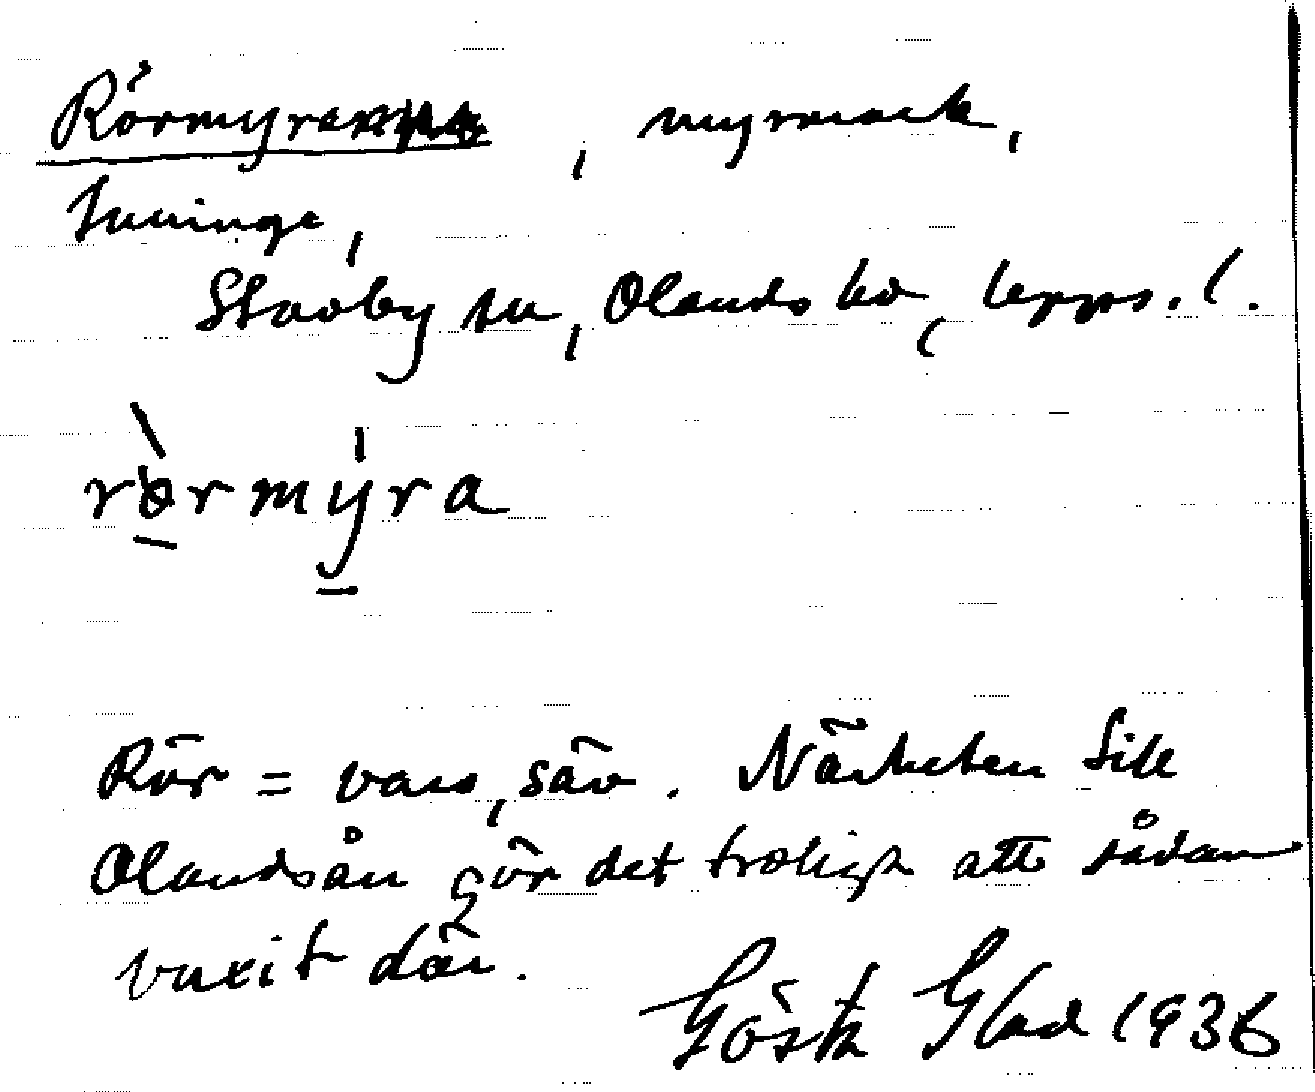 Rörmyran, myrmark,
Tuninge,
Stavby sn, Olands hd, Upps. l.
rörmyra
Rör = vass, säv. Närheten till
Olandsån gör det troligt att sådan
vuxit där.
Gösta Glad 1936